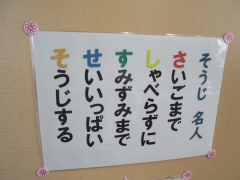 そうじ 名人
さいごまで
しゃべらずに
すみずみまで
せいいっぱい
そうじする